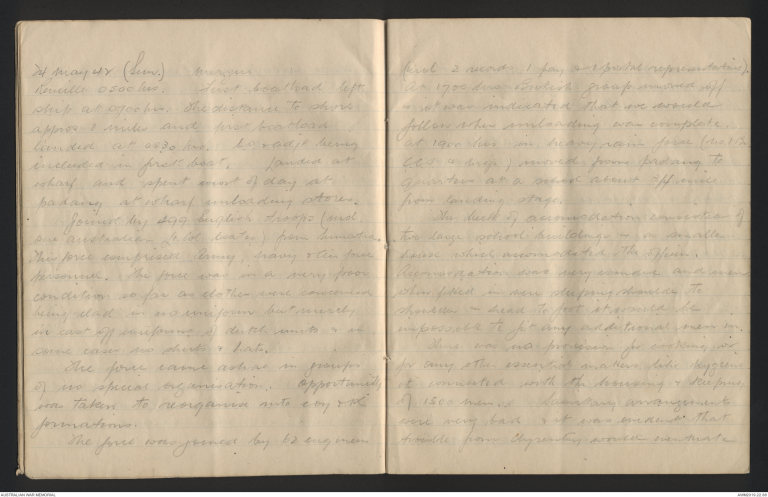 24 May 42 (Sun.) Mergui
Reveille 0500 hrs. First boatload left
ship at 0700 hrs. The distance to shore
approx 8 miles and first boatload
landed at 0830 hrs. Co & adjt being
included in first boat. Landed at
wharf and spent most of day at
padang at wharf unloading stores.
Joined by 499 English troops (incl.
one Australian ) from Sumatra.
This force comprised Army, Navy & Air force
personnel. The force was in a very poor
condition so far as clothes were concerned
being clad in no uniform but merely
in cast off uniforms of dutch units & in
some cases no shirts & hats.
The force came ashore in groups
of no special organisation. Opportunity
was taken to reorganise into coy & pl
formations.
The force was joined by 62 engineers
(incl. 2 records 1 pay & 1 postal representative).
At 1700 hrs English group moved off
& it was indicated that we would
follow when unloading was complete.
At 1900 hrs in heavy rain force (
) moved from padang to
quarters at a school about 3/4 mile
from landing stage.
The total of accomodation consisted of
two large school buildings & a smaller
house which accomodated the officers.
Accomodation was very and men
when fitted in were sleeping shoulder to
shoulder & head to foot it would be
impossible to fit any additional men in.
There was no provision for cooking or
for any other essential matters like hygiene
it connected with the housing & keeping
of 1500 men. Sanitary arrangements
were very bad & it was evident that
trouble from dysentery would eventuate
AUSTRALIAN WAR MEMORIAL